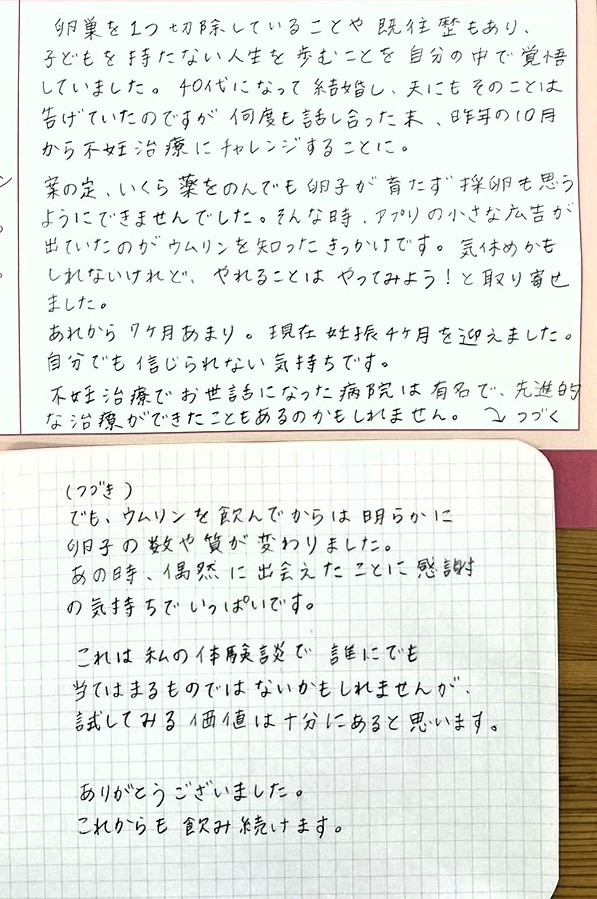 卵巣を1つ切除していることや既往歴もあり、
子どもを持たない人生を歩むことを自分の中で覚悟
していました。40代になって結婚し、夫にもそのことは
告げていたのですが何度も話し合った末、昨年の10月
から不妊治療にチャレンジすることに。
案の定、いくら薬をのんでも卵子が育たず採卵も思う
ようにできませんでした。そんな時、アプリの小さな広告が
出ていたのがウムリンを知ったきっかけです。気休めかも
しれないけれど、やれることはやってみよう!と取り寄せ
ました。
あれから7ヶ月あまり。現在妊娠4ヶ月を迎えました。
自分でも信じられない気持ちです。
不妊治療でお世話になった病院は有名で、先進的
な治療ができたこともあるのかもしれません。 つづく
(つづき)
でも、ウムリンを飲んでからは明らかに
卵子の数や質が変わりました。
あの時、偶然に出会えたことに感謝
の気持ちでいっぱいです。
これは私の体験談で誰にでも
当てはまるものではないかもしれませんが、
試してみる価値は十分にあると思います。
ありがとうございました。
これからも飲み続けます。